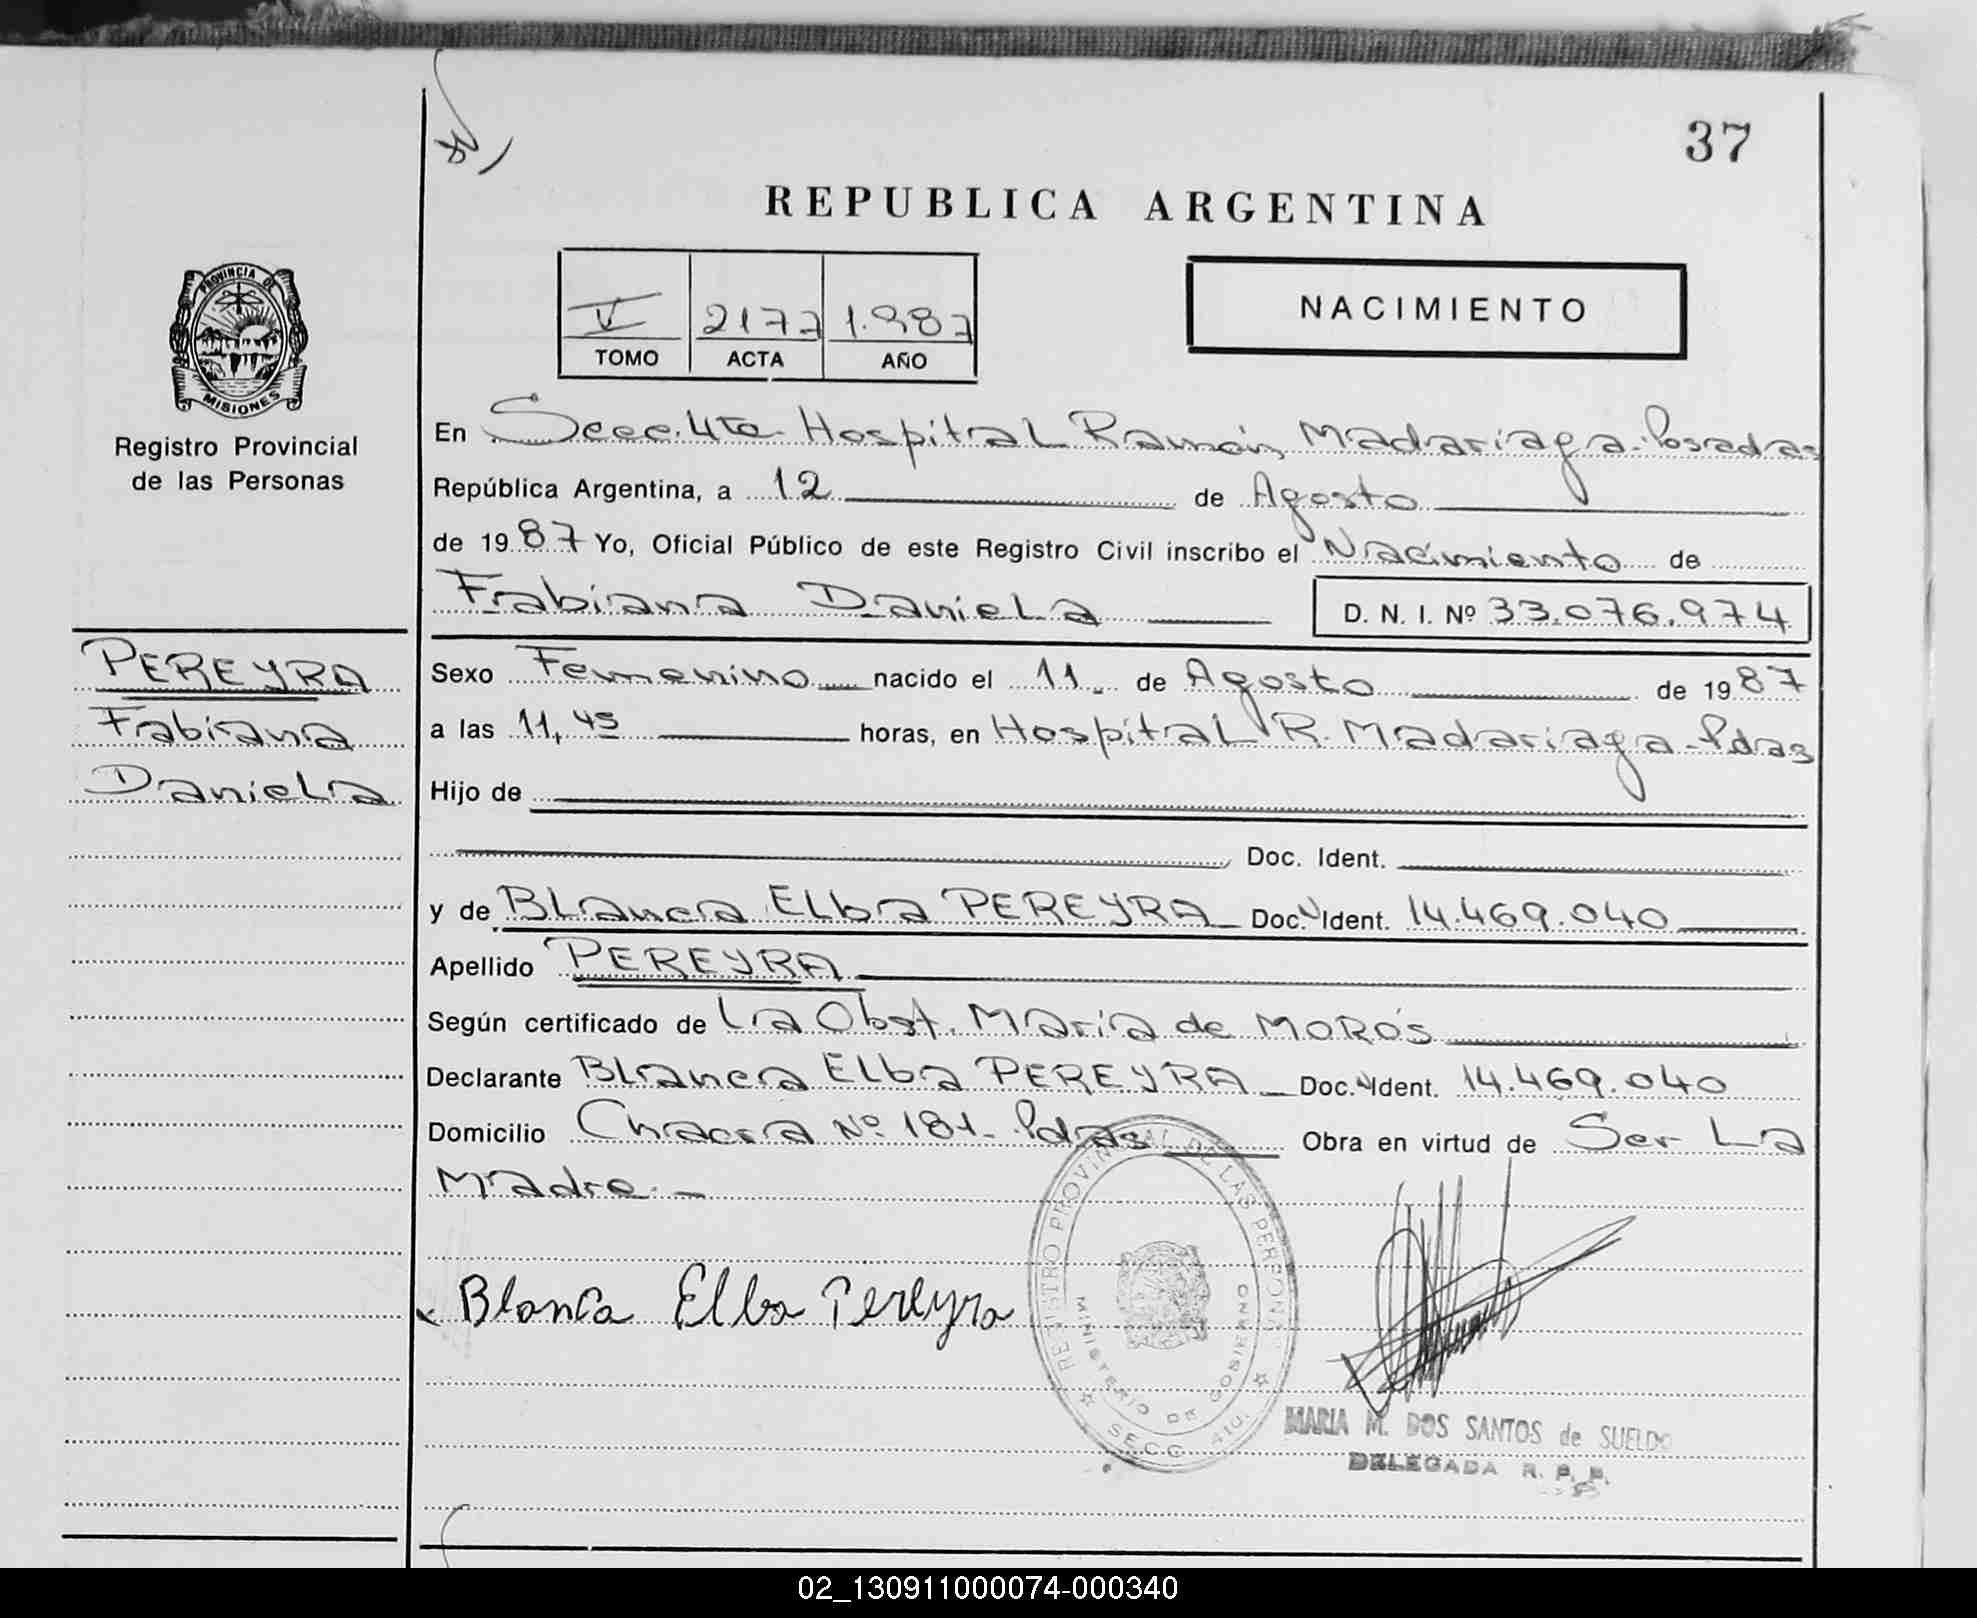 37
REPUBLICA ARGENTINA
PROVINCIA DE
MISIONES
Registro Provincial
de las Personas
V 2177 1.987
TOMO ACTA AÑO
NACIMIENTO
En Secc. 4ta. Hospital Ramón Madariaga. Posadas
República Argentina, a 12 de Agosto
de 1987 Yo, Oficial Público de este Registro Civil inscribo el Nacimiento de
Fabiana Daniela D. N. I. Nº 33.076.974
PEREYRA
Fabiana
Daniela
Sexo Femenino nacido el 11 de Agosto de 1987
a las 11,45 horas, en Hospital R. Madariaga-Pdas
Hijo de
Doc. Ident.
y de Blanca Elba PEREYRA Doc. Ident. 14.469.040
Apellido PEREYRA
Según certificado de La Obst. María de MOROS
Declarante Blanca Elba PEREYRA Doc. Ident. 14.469.040
Domicilio Chacra Nº 181- Pdas Obra en virtud de Ser La
Madre.-
Blanca Elba Pereyra
REGISTRO PROVINCIAL DE LAS PERSONAS
MINISTERIO DE GOBIERNO
SECC. 4ta.
MARIA M. DOS SANTOS de SUELDO
DELEGADA R. P. P.
02_130911000074-000340